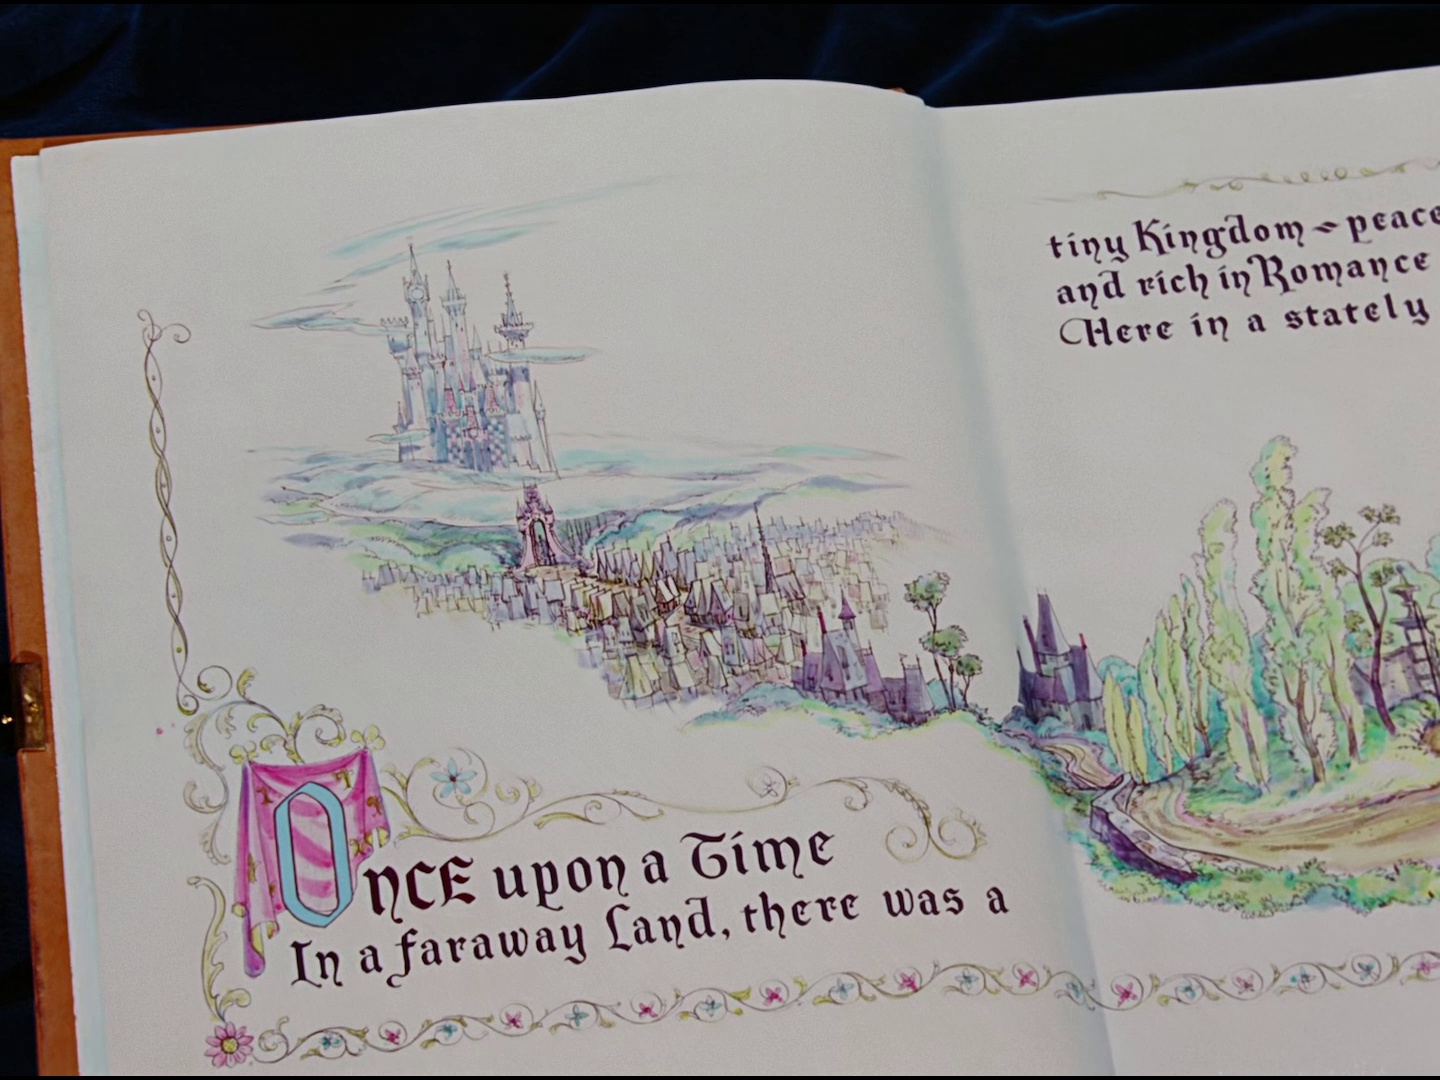 Once upon a Time
In a faraway Land, there was a
tiny Kingdom ~ peace
and rich in Romance
Here in a stately